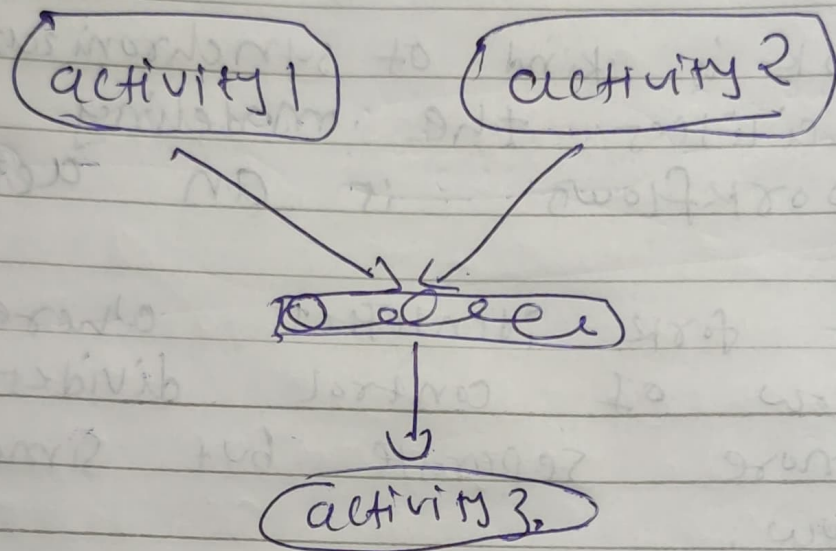 activity 1
activity 2
activity 3.